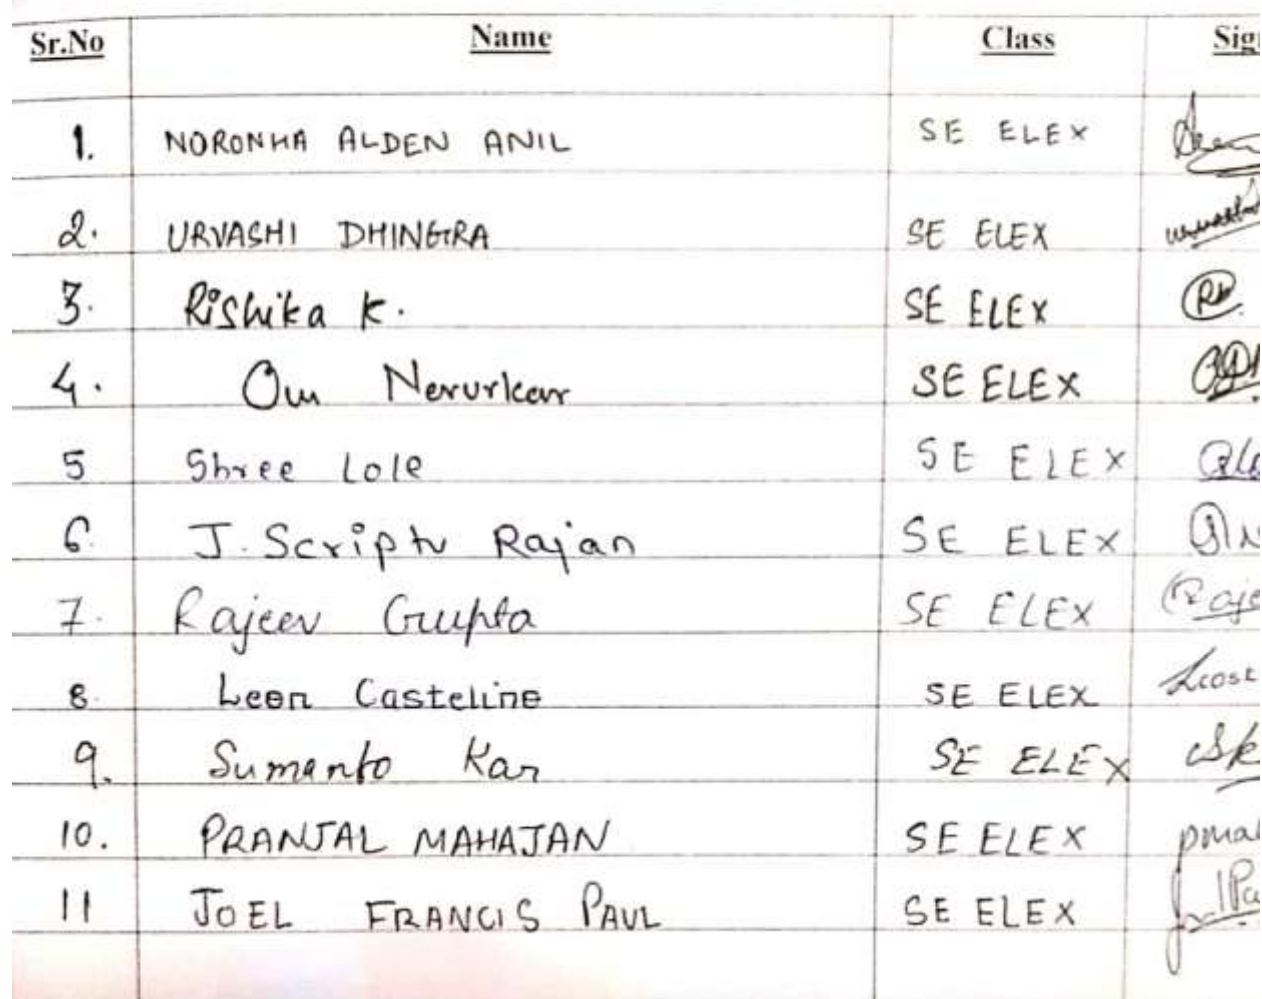 Sr.No Name Class Sig
1. NORONHA ALDEN ANIL SE ELEX
2. URVASHI DHINGRA SE ELEX
3. Rishika K. SE ELEX
4. Om Nerurkar SE ELEX
5 Shree Lole SE ELEX
6. J. Scriptu Rajan SE ELEX
7. Rajeev Gupta SE ELEX Raje
8. Leon Casteline SE ELEX
9. Sumanto Kar SE ELEX Sk
10. PRANJAL MAHAJAN SE ELEX pma
11 JOEL FRANCIS PAUL SE ELEX